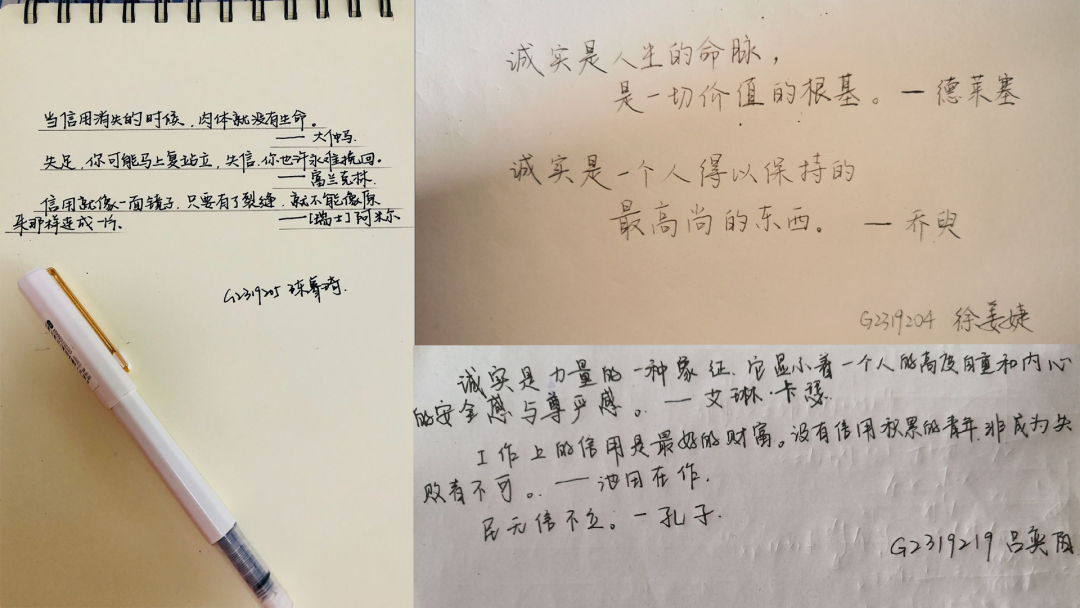 当信用消失的时候，肉体就没有生命。
—— 大仲马.
失足，你可能马上复站立，失信，你也许永难挽回。
—— 富兰克林.
信用就像一面镜子，只要有了裂缝，就不能像原
来那样连成一片。 ——[瑞士]阿米尔
G2319205
诚实是人生的命脉，
是一切价值的根基。—德莱塞
诚实是一个人得以保持的
最高尚的东西。 —乔叟
G2319204 徐姜婕
诚实是力量的一种象征，它显示着一个人的高度自重和内心
的安全感与尊严感。—艾琳·卡瑟.
工作上的信用是最好的财富。没有信用积累的青年，非成为失
败者不可。——池田在作.
民无信不立。—孔子.
G2319219 吕奕阳